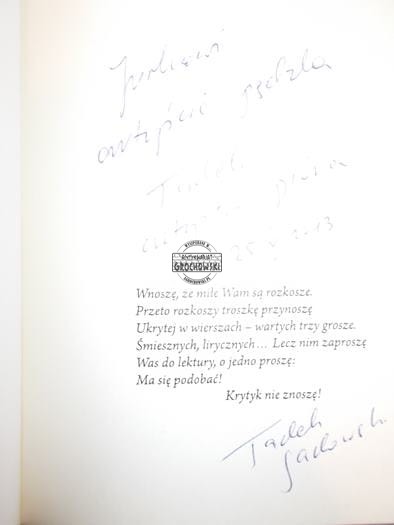 artyście pędzla
Tadek
artysta pióra
25 V 2013
ANTYKWARIAT
GROCHOWSKI
Wnoszę, że miłe Wam są rozkosze.
Przeto rozkoszy troszkę przynoszę
Ukrytej w wierszach – wartych trzy grosze.
Śmiesznych, lirycznych… Lecz nim zaproszę
Was do lektury, o jedno proszę:
Ma się podobać!
Krytyk nie znoszę!
Tadek
Sadowski